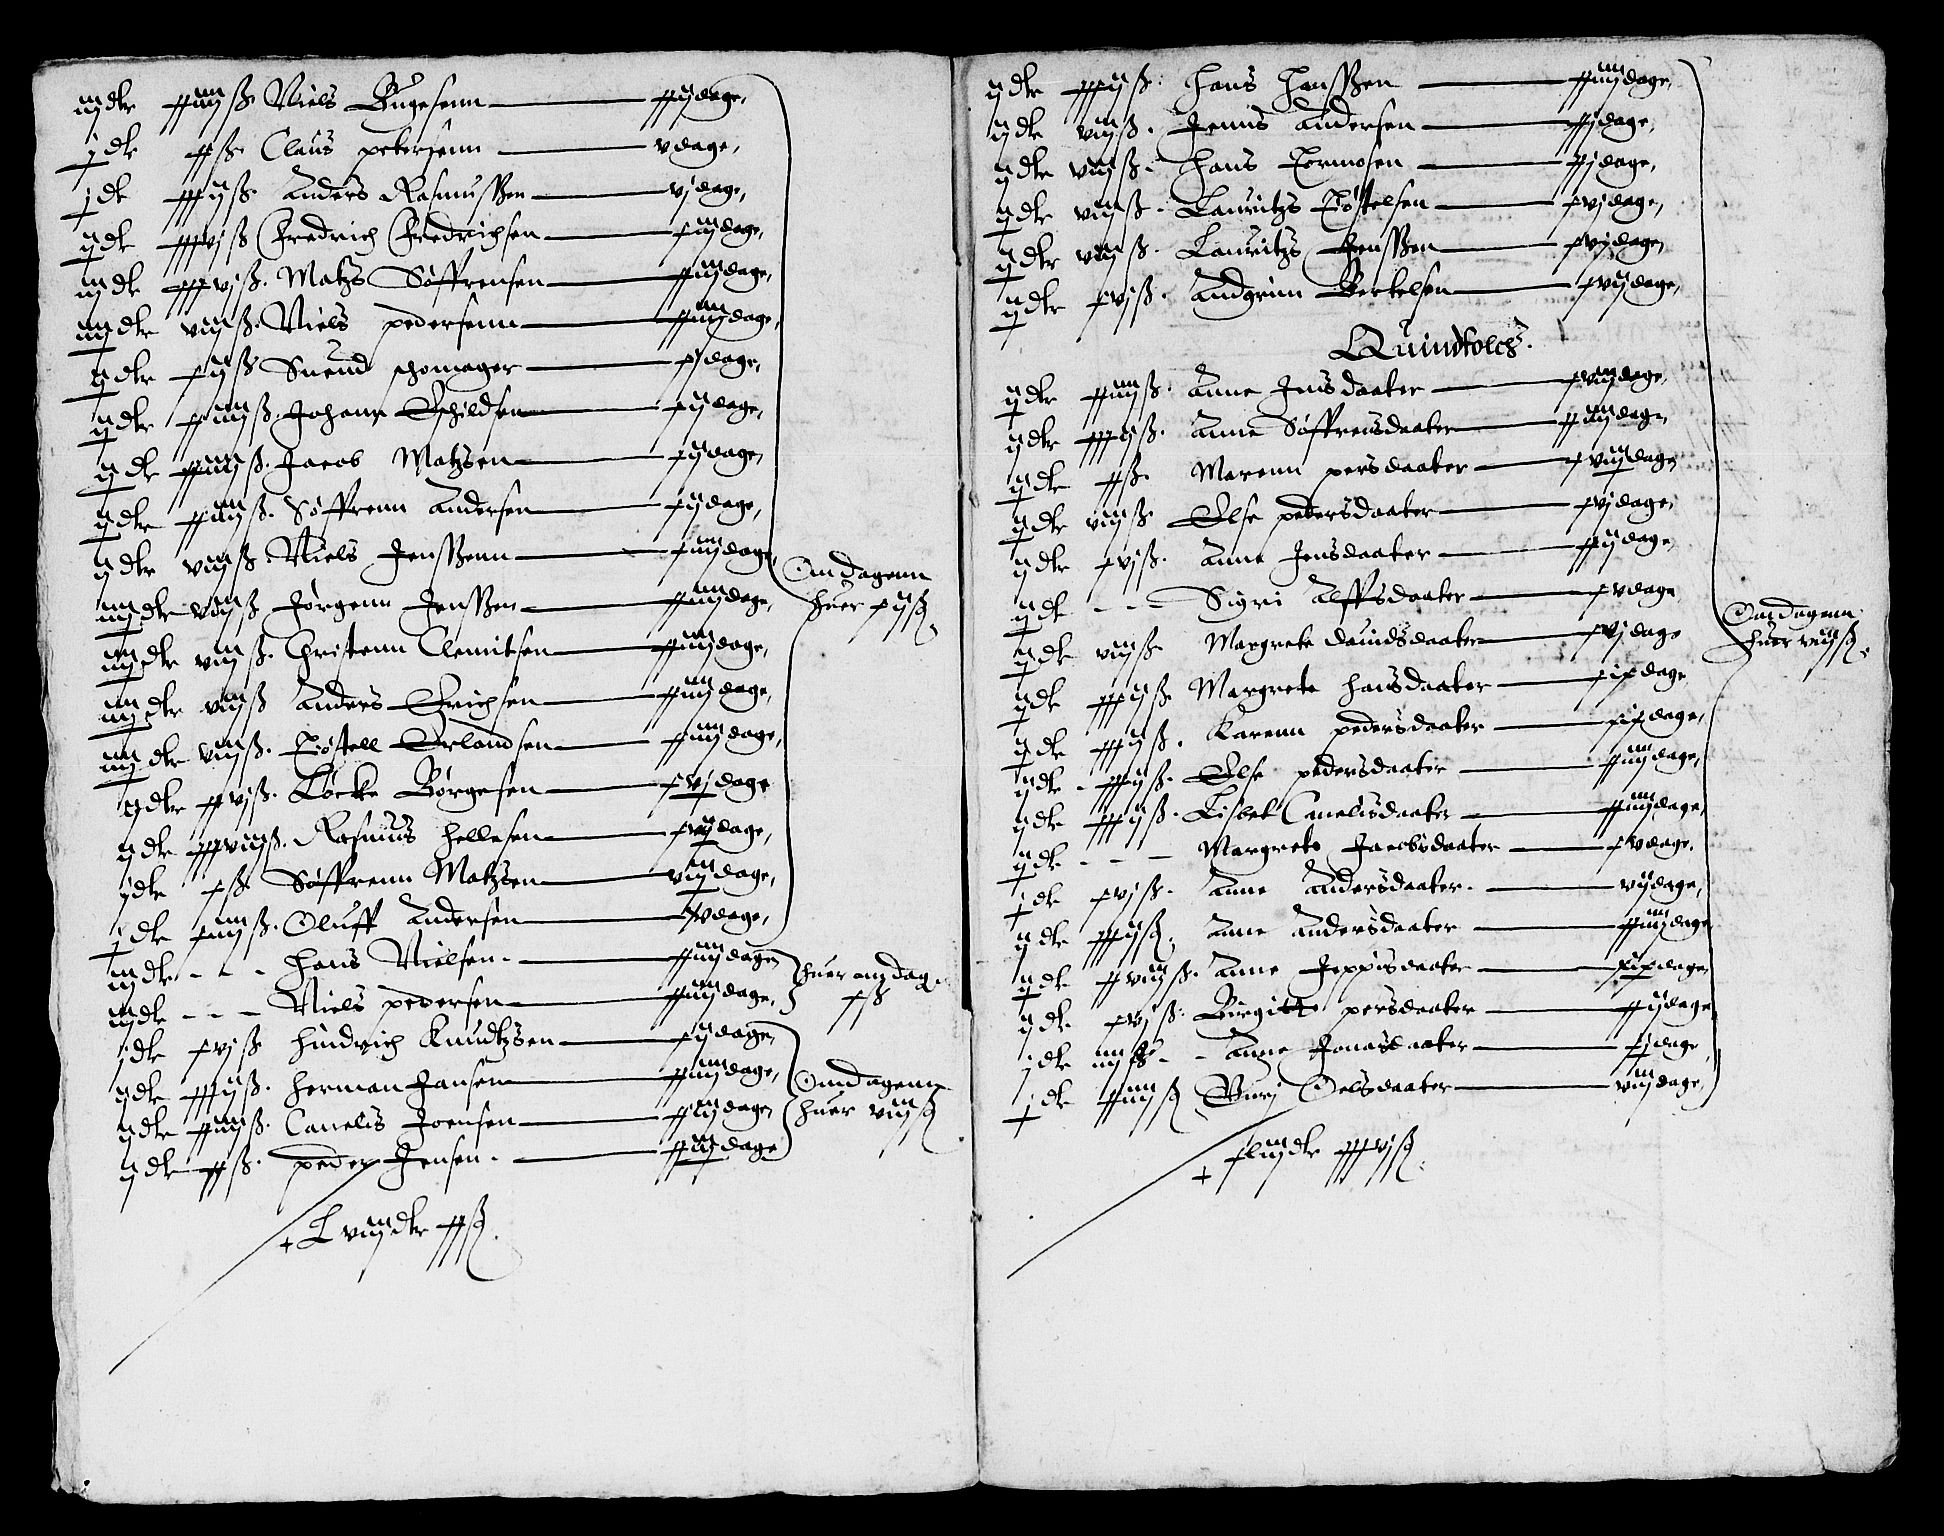 iij dlr xxiiij ß. Niels Bugesenn — xxij dage,
j dlr xx ß. Claus petersenn — v dage,
j dlr xxxij ß. Anders Rasmussen — vj dage,
ij dlr xxxvj ß Fredrich Fredrichsen — xiij dage,
iij dlr xxxvj ß. Matzs Søffrensen — xxiij dage,
iiij dlr viij ß. Niels pedersenn — xxiiij dage,
ij dlr xij ß Suend schomager — xj dage,
ij dlr xxiiij ß. Johann Eschildsen — xij dage,
ij dlr xxiiij ß. Jacob Matzsen — xij dage,
ij dlr xxiiij ß. Søffrenn Andersen — xij dage,
ij dlr viij ß Niels Jenssenn — xiiij dage,
iiij dlr viij ß Jørgenn Jenssen — xxiiij dage,
iiij dlr viij ß. Christenn Clemitsen — xxiiij dage,
iiij dlr viij ß Anders Erichsen — xxiiij dage,
iiij dlr viij ß. Tostell Erlandsen — xxiiij dage,
ij dlr xxvj ß. Løcke Børgesen — xvj dage
ij dlr xxxviij ß. Rasmus Hellesen — xvij dage,
j dlr x ß Søffrenn Matzsen — viij dage,
j dlr xiiij ß. Oluff Andersen — v dage,
Omdagenn
huer xij ß.
iij dlr - - - Hans Nielsen. — xxiiij dage,
iij dlr - - - Niels pedersen — xxiiij dage,
huer om dag
x ß
j dlr xvj ß Hindrich Knudtzsen — xij dage,
ij dlr xxxij ß. Herman Jansen — xxiiij dage,
ij dlr xxiiij ß. Canelis Joensen — xxiij dage,
ij dlr xx ß. peder Jensen. — xxiij dage
Omdagenn
huer viij ß
+ Lviij dlr xx ß.
ij dlr xxxij ß. Hans Hanssen — xxiiij dage,
ij dlr viij ß. Jenns Andersen — xxj dage,
ij dlr viij ß. Hans Tormosen — xxj dage,
ij dlr viij ß. Lauritzs Tostelsen — xvj dage,
ij dlr viij ß. Lauritzs Jenssen — xvj dage,
ij dlr xvj ß. Andgrim Berkelsen — xvij dage,
Quindfolch.
ij dlr xxiiij ß. Anne Jensdaater — xviij dage,
ij dlr xxxij ß. Anne Søffrensdaater — xxiiij dage,
ij dlr xx ß. Marenn persdaater — xviij dage,
ij dlr viij ß Else pedersdaater — xvj dage,
ij dlr xvj ß. Anne Jensdaater — xxij dage,
ij dlr - - - Sigri Alffsdaater — xv dage
ij dlr viij ß. Margrete dauidsdaater — xvj dage
ij dlr xxxij ß Margrete Hansdaater — xix dage,
ij dlr xxxij ß. Karenn pedersdaater — xix dage,
ij dlr xxxij ß. Else pedersdaater — xxiiij dage,
ij dlr xxxij ß. Lisbet Canelisdaater — xxiiij dage,
ij dlr - - - Margrete Jacobsdaater — xv dage,
j dlr xvj ß. Anne Andersdaater. — vij dage,
ij dlr xxxij ß. Anne Andersdaater — xxiiij dage,
ij dlr xxviij ß. Anne Jeppisdaater — xix dage,
ij dlr xvj ß. Birgitte persdaater — xxij dage
j dlr iiij ß - - Anne Jonasdaater — xj dage,
j dlr xxiiij ß Burj Oelsdaater — viij dage,
Omdagenn
huer viij ß.
+ xliij dlr xxxvj ß.